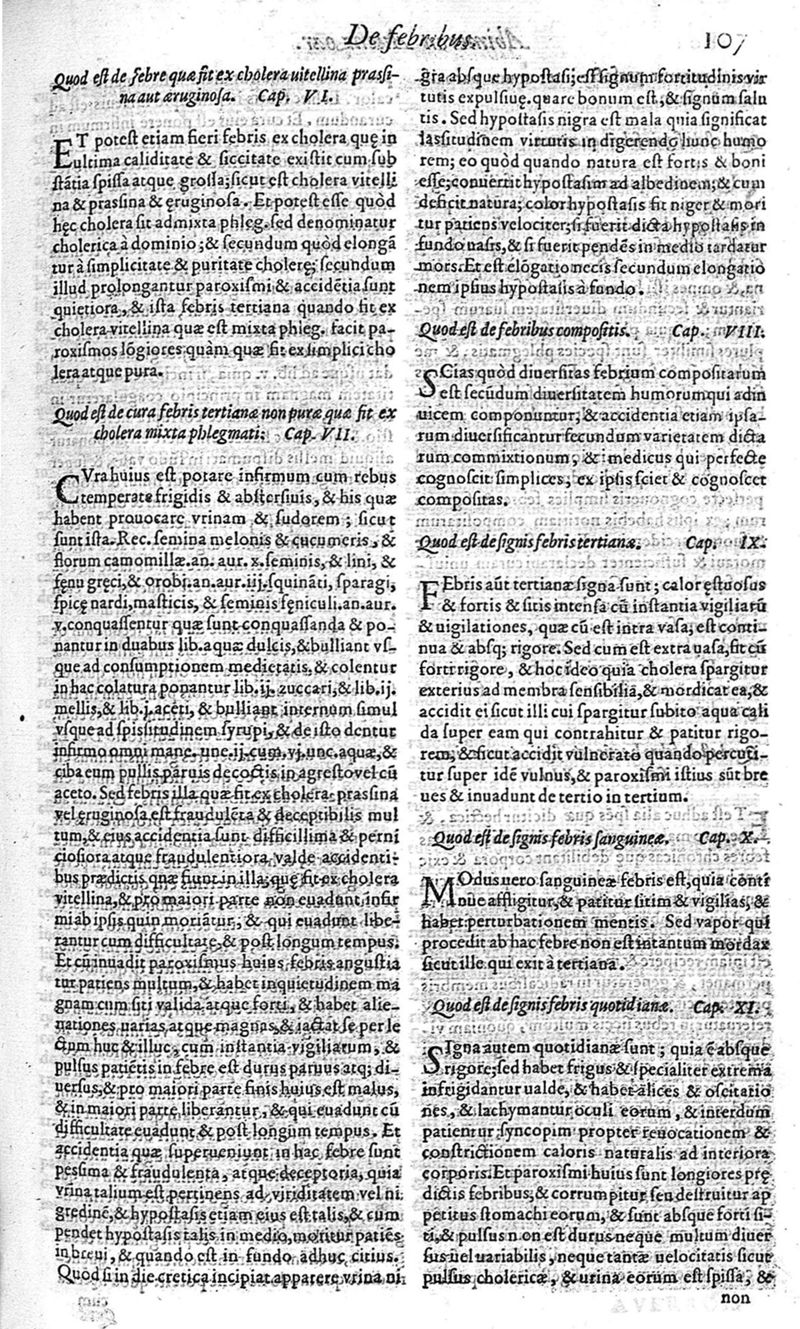 De febribus.
107
Quod est de febre quæ fit ex cholera uitellina prassi-
na aut æruginosa. Cap. VI.
ET potest etiam fieri febris ex cholera quę in
ultima caliditate & siccitate existit cum sub
stātia spissa atque grossa; sicut est cholera vitelli
na & prassina & eruginosa. Et potest esse quòd
hęc cholera sit admixta phleg. sed denominatur
cholerica à dominio; & secundum quòd elongā
tur à simplicitate & puritate cholerę; secundum
illud prolongantur paroxismi & accidētia sunt
quietiora, & ista febris tertiana quando fit ex
cholera vitellina quæ est mixta phleg. facit pa-
roxismos lōgiores quàm quæ fit ex simplici cho
lera atque pura.
Quod est de cura febris tertianæ non puræ quæ fit ex
cholera mixta phlegmati. Cap. VII.
CVra huius est potare infirmum cum rebus
temperate frigidis & abstersiuis, & his quæ
habent prouocare vrinam & sudorem; sicut
sunt ista. Rec. semina melonis & cucumeris, &
florum camomillæ. an. aur. x. seminis, & lini, &
fęnu gręci, & orobi. an. aur. iij. squināti, sparagi,
spicę nardi, masticis, & seminis fęniculi. an. aur.
v. conquassentur quæ sunt conquassanda & po-
nantur in duabus lib. aquæ dulcis, & bulliant vs-
que ad consumptionem medietatis, & colentur
in hac colatura ponantur lib. ij. zuccari, & lib. ij.
mellis, & lib. j. aceti, & bulliant internum simul
vsque ad spissitudinem syrupi, & de isto dentur
infirmo omni mane. unc. ij. cum. vj. unc. aquæ, &
ciba eum pullis paruis decoctis in agresto vel cū
aceto. Sed febris illa quæ fit ex cholera prassina
vel eruginosa est fraudulēta & deceptibilis mul
tum, & eius accidentia sunt difficillima & perni
ciosiora atque fraudulentiora valde accidenti-
bus prædictis quæ fiunt in illa, quę fit ex cholera
vitellina, & pro maiori parte non euadunt infir
mi ab ipsis quin moriātur, & qui euadunt libe-
rantur cum difficultate, & post longum tempus.
Et cū inuadit paroxismus huius febris angustia
tur patiens multum, & habet inquietudinem ma
gnam cum siti valida atque forti, & habet alie-
nationes varias atque magnas, & iactat se per le
ctum huc & illuc, cum instantia vigiliarum, &
pulsus patiētis in febre est durus paruus atq; di-
uersus, & pro maiori parte finis huius est malus,
& in maiori parte liberantur, & qui euadunt cū
difficultate euadunt & post longum tempus. Et
accidentia quæ superueniunt in hac febre sunt
pessima & fraudulenta, atque deceptoria, quia
vrina talium est pertinens ad viriditatem vel ni
gredinē, & hypostasis etiam eius est talis, & cum
pendet hypostasis talis in medio, moritur patiēs
in breui, & quando est in fundo adhuc citius.
Quòd si in die cretica incipiat apparere vrina ni
gra absque hypostasi; est signum fortitudinis vir
tutis expulsiuę. quare bonum est, & signum salu
tis. Sed hypostasis nigra est mala quia significat
lassitudinem virtutis in digerendo hunc humo
rem; eo quòd quando natura est fortis & boni
esse; conuertit hypostasim ad albedinem; & cum
deficit natura; color hypostasis fit niger & mori
tur patiens velociter; si fuerit dicta hypostasis in
fundo uasis, & si fuerit pendēs in medio tardatur
mors. Et est elōgatio necis secundum elongatio
nem ipsius hypostasis à fundo.
Quod est de febribus compositis. Cap. VIII.
SCias quòd diuersitas febrium compositarum
est secūdum diuersitatem humorum qui adin
uicem componuntur; & accidentia etiam ipsa-
rum diuersificantur secundum varietatem dicta
rum commixtionum; & medicus qui perfecte
cognoscit simplices, ex ipsis sciet & cognoscet
compositas.
Quod est de signis febris tertianæ. Cap. IX.
FEbris aūt tertianæ signa sunt; calor ęstuosus
& fortis & sitis intensa cū instantia vigiliarū
& uigilationes, quæ cū est intra vasa, est conti-
nua & absq; rigore. Sed cum est extra uasa, fit cū
forti rigore, & hoc ideo quia cholera spargitur
exterius ad membra sensibilia, & mordicat ea, &
accidit ei sicut illi cui spargitur subito aqua cali
da super eam qui contrahitur & patitur rigo-
rem, & sicut accidit vulnerato quando percuti-
tur super idē vulnus, & paroxismi istius sūt bre
ues & inuadunt de tertio in tertium.
Quod est de signis febris sanguineæ. Cap. X.
MOdus uero sanguineæ febris est, quia conti
nue affligitur, & patitur sitim & vigilias, &
habet perturbationem mentis. Sed vapor qui
procedit ab hac febre non est in tantum mordax
sicut ille qui exit à tertiana.
Quod est de signis febris quotidianæ. Cap. XI.
SIgna autem quotidianæ sunt; quia ē absque
rigore; sed habet frigus & specialiter extrema
infrigidantur ualde, & habet alices & oscitatio
nes, & lachymantur oculi eorum, & interdum
patientur syncopim propter reuocationem &
constrictionem caloris naturalis ad interiora
corporis. Et paroxismi huius sunt longiores prę
dictis febribus, & corrumpitur seu destruitur ap
petitus stomachi eorum, & sunt absque forti si-
ti, & pulsus non est durus neque multum diuer
sus uel uariabilis, neque tantæ uelocitatis sicut
pulsus cholericæ, & urina eorum est spissa, &
non